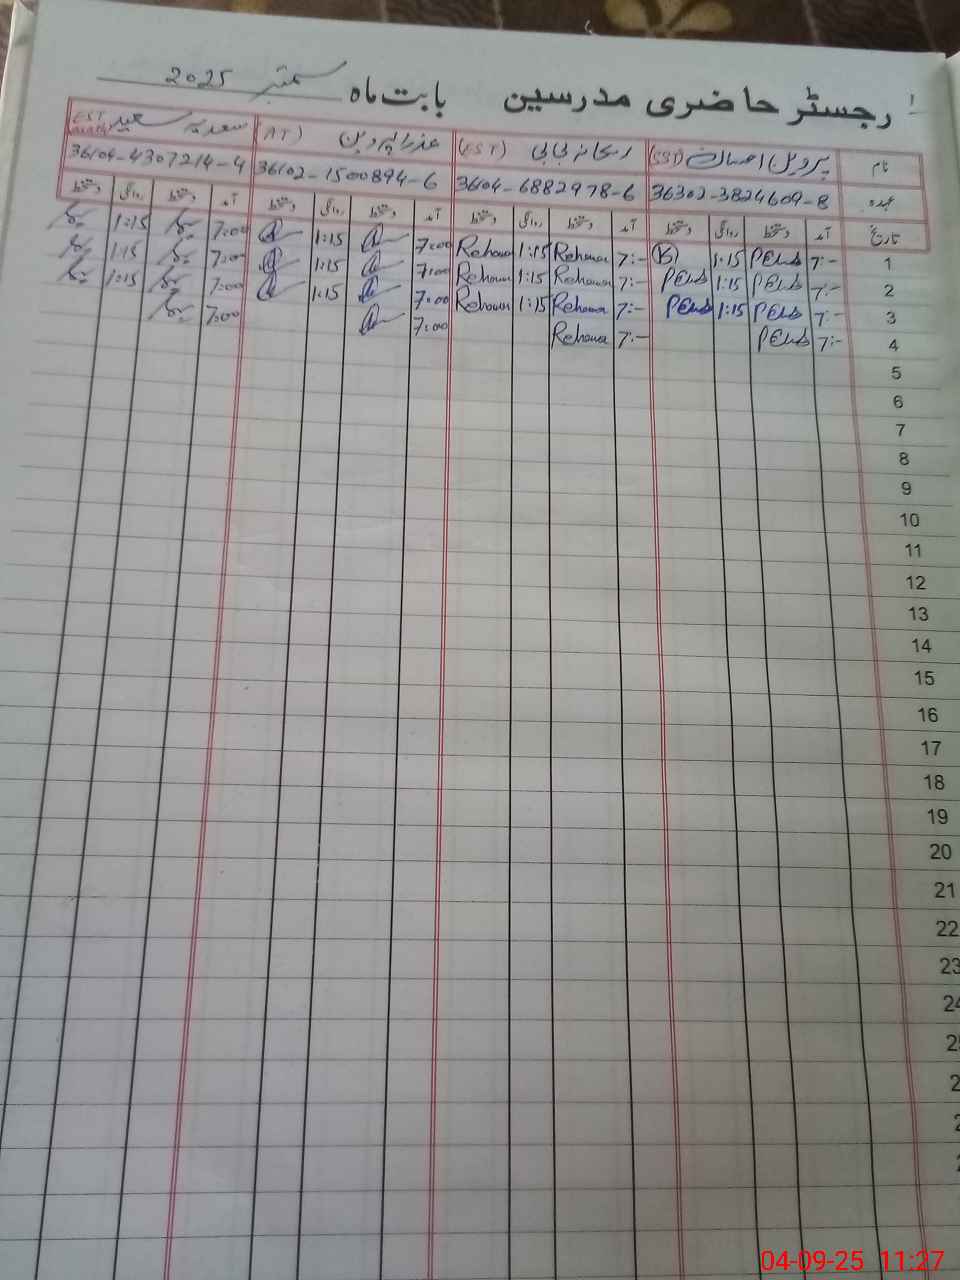 رجسٹر حاضری مدرسین بابت ماہ ستمبر 2025
نام پروین (SST) ریحانہ بی بی (EST) عذرا پروین (AT) سعدیہ سعید (EST
عہدہ 36302-3824609-8 36104-6882978-6 36102-1500894-6 36104-4307214-4
تاریخ آمد دستخط روانگی دستخط آمد دستخط روانگی دستخط آمد دستخط روانگی دستخط آمد دستخط روانگی دستخط
1 7:- 1:15 7:- Rehana 1:15 Rehana 7:00 1:15 7:00 1:15
2 7:- 1:15 7:- Rehana 1:15 Rehana 7:00 1:15 7:00 1:15
3 7:- 1:15 7:- Rehana 1:15 Rehana 7:00 1:15 7:00 1:15
4 7:- 7:- Rehana 7:00 7:00
5
6
7
8
9
10
11
12
13
14
15
16
17
18
19
20
21
22
23
04-09-25 11:27